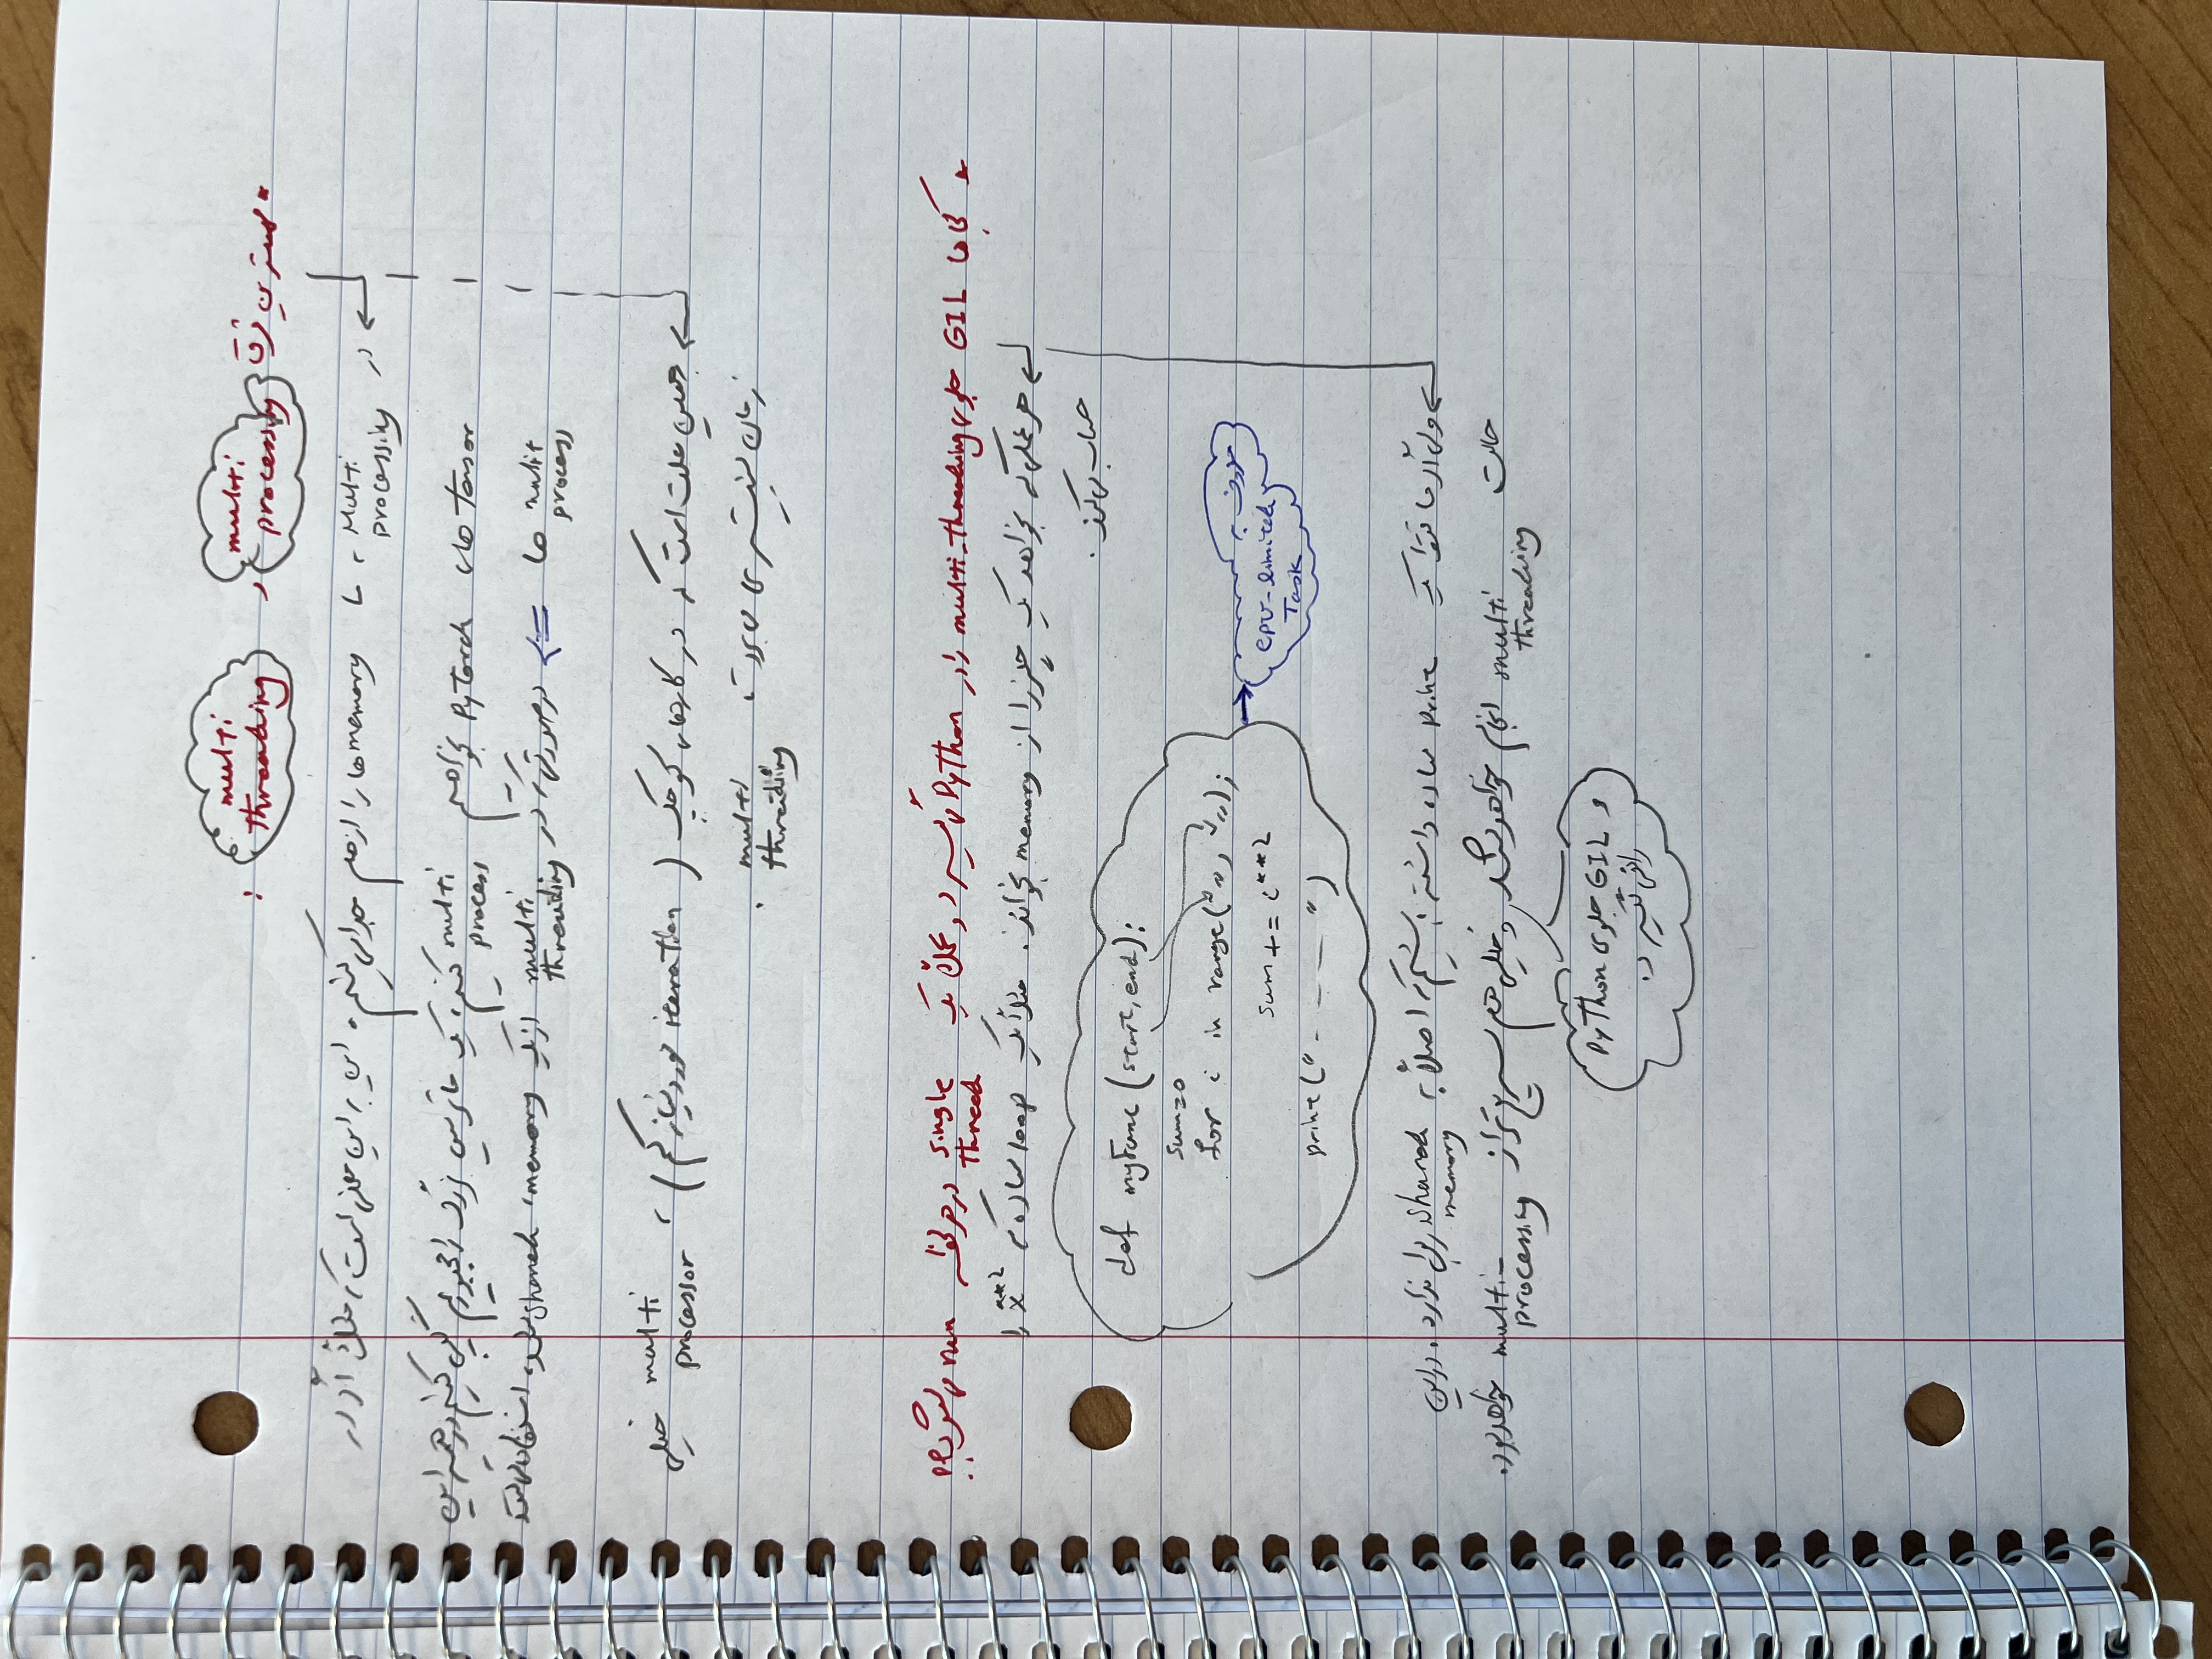 * مهمترین فرق multi processing و multi threading :
در Multi processing ، ما memory ها را از هم جدا می‌کنیم، این به این معنی است که مثلاً اگر در
tensor های PyTorch بخواهیم multi process کنیم، یک ماتریس بزرگ را مجبوریم کپی کنیم در همه این
mulit process ها <= در صورتی که در multi threading از یک memory، shared استفاده می‌کنند
همین علت است که در کارهای کوچک ( iteration مورد نیاز کم ) ، multi processor خیلی
زمان بیشتری می‌برد تا multi threading .
* کجاها GIL جلوی multi-threading را در Python می‌گیرد و عملاً یک single thread در هر لحظه run می‌شود؟؟!
هر عملی که بخواهد یک چیز را از memory بخواند. مثلاً یک loop ساده که x**2 را
حساب می‌کند.
def myFunc (start, end):
sum=0
for i in range(" ", " "):
sum += i**2
print("- — — ")
معروف به
CPU-limited
Task
ولی اگر ما فقط یک print ساده داشته باشیم که اصلاً به shared memory ربطی ندارد، در این
حالت multi threading انجام خواهد شد و خیلی هم سریع‌تر از multi-processing خواهد بود.
و GIL جلوی Python
را نمی‌گیرد.